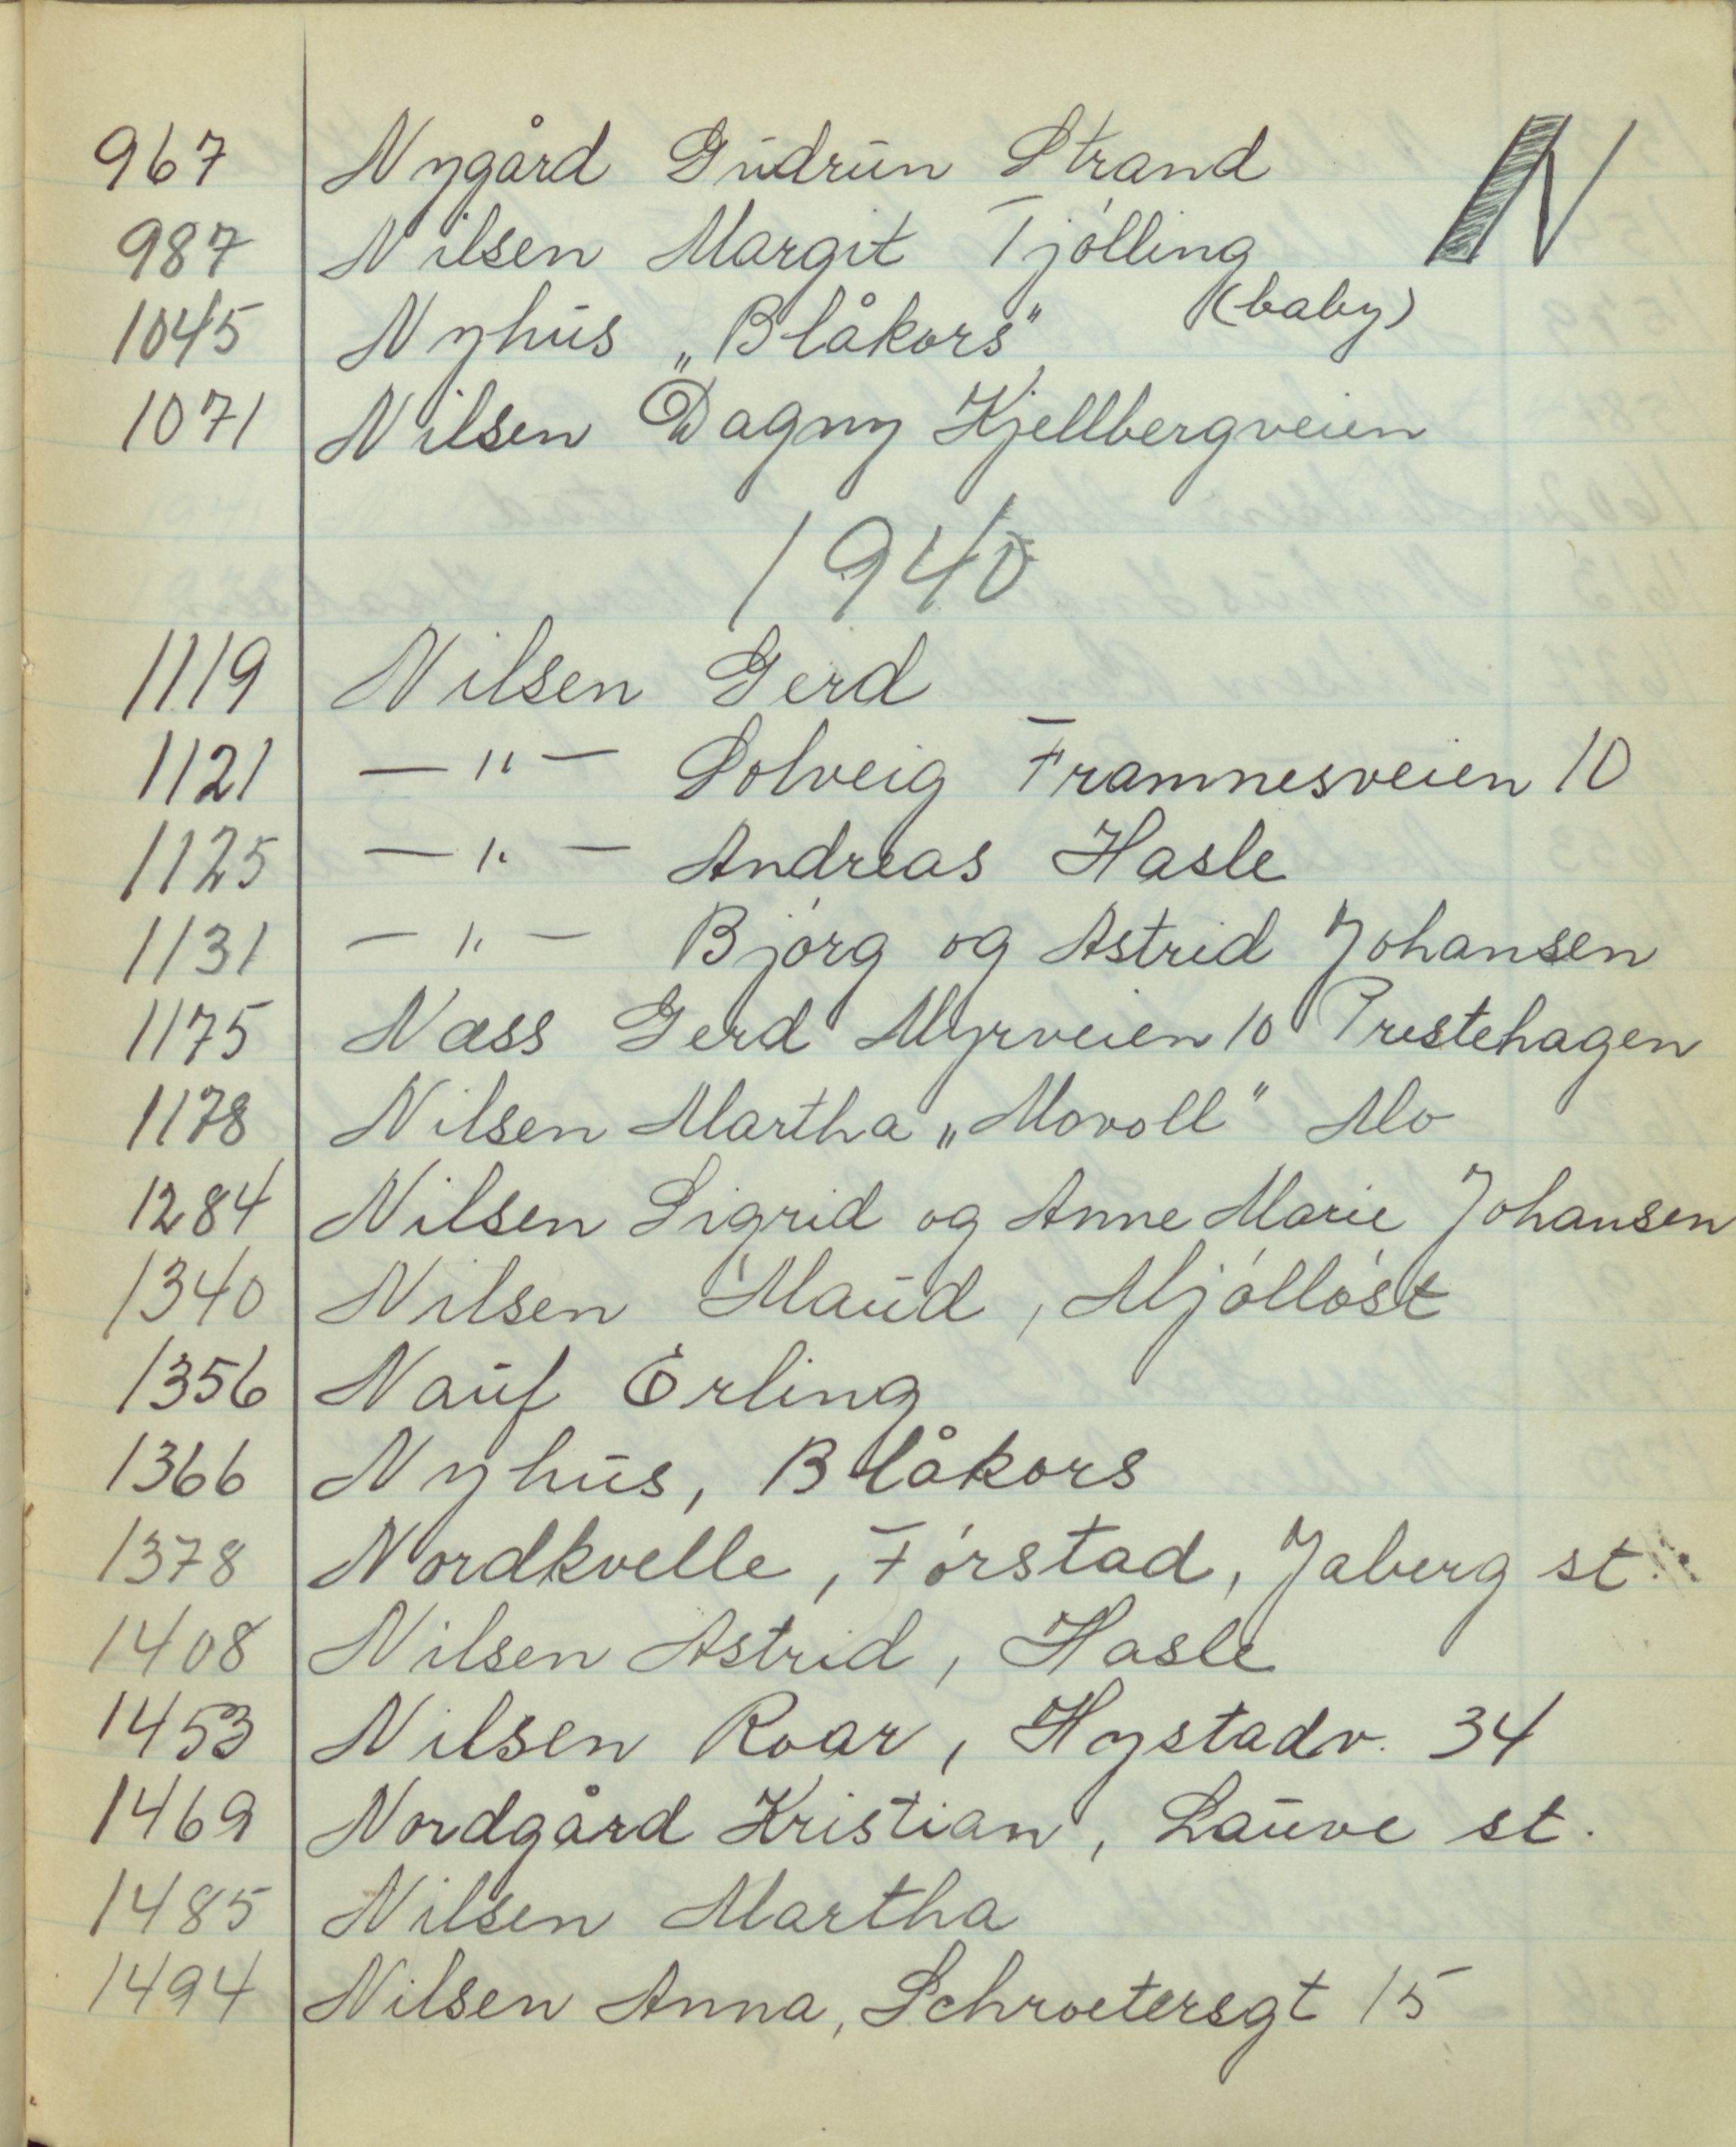 N
967 Nygård Gudrun Strand
987 Nilsen Margit Tjølling
1045 Nyhus „Blåkors" (baby)
1071 Nilsen Dagny Kjellbergveien
1940
1119 Nilsen Gerd
1121 — " — Solveig Framnesveien 10
1125 — " — Andreas Hasle
1131 — " — Bjørg og Astrid Johansen
1175 Næss Gerd Myrveien 10 Prestehagen
1178 Nilsen Martha „Movoll" Mo
1284 Nilsen Sigrid og Anne Marie Johansen
1340 Nilsen Maud, Mjølløst
1356 Nauf Erling
1366 Nyhus, Blåkors
1378 Nordkvelle,Førstad, Jaberg st.
1408 Nilsen Astrid, Hasle
1453 Nilsen Roar, Hystadv. 34
1469 Nordgård Kristian, Lauve st.
1485 Nilsen Martha
1494 Nilsen Anna, Schroetersgt 15